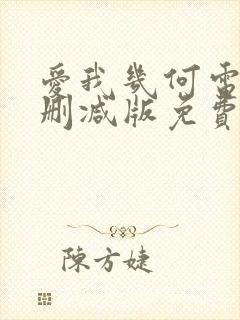 愛我幾何電
刪減版免費
陳方婕